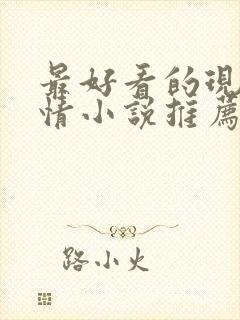 最好看的現
情小說推薦
路小火